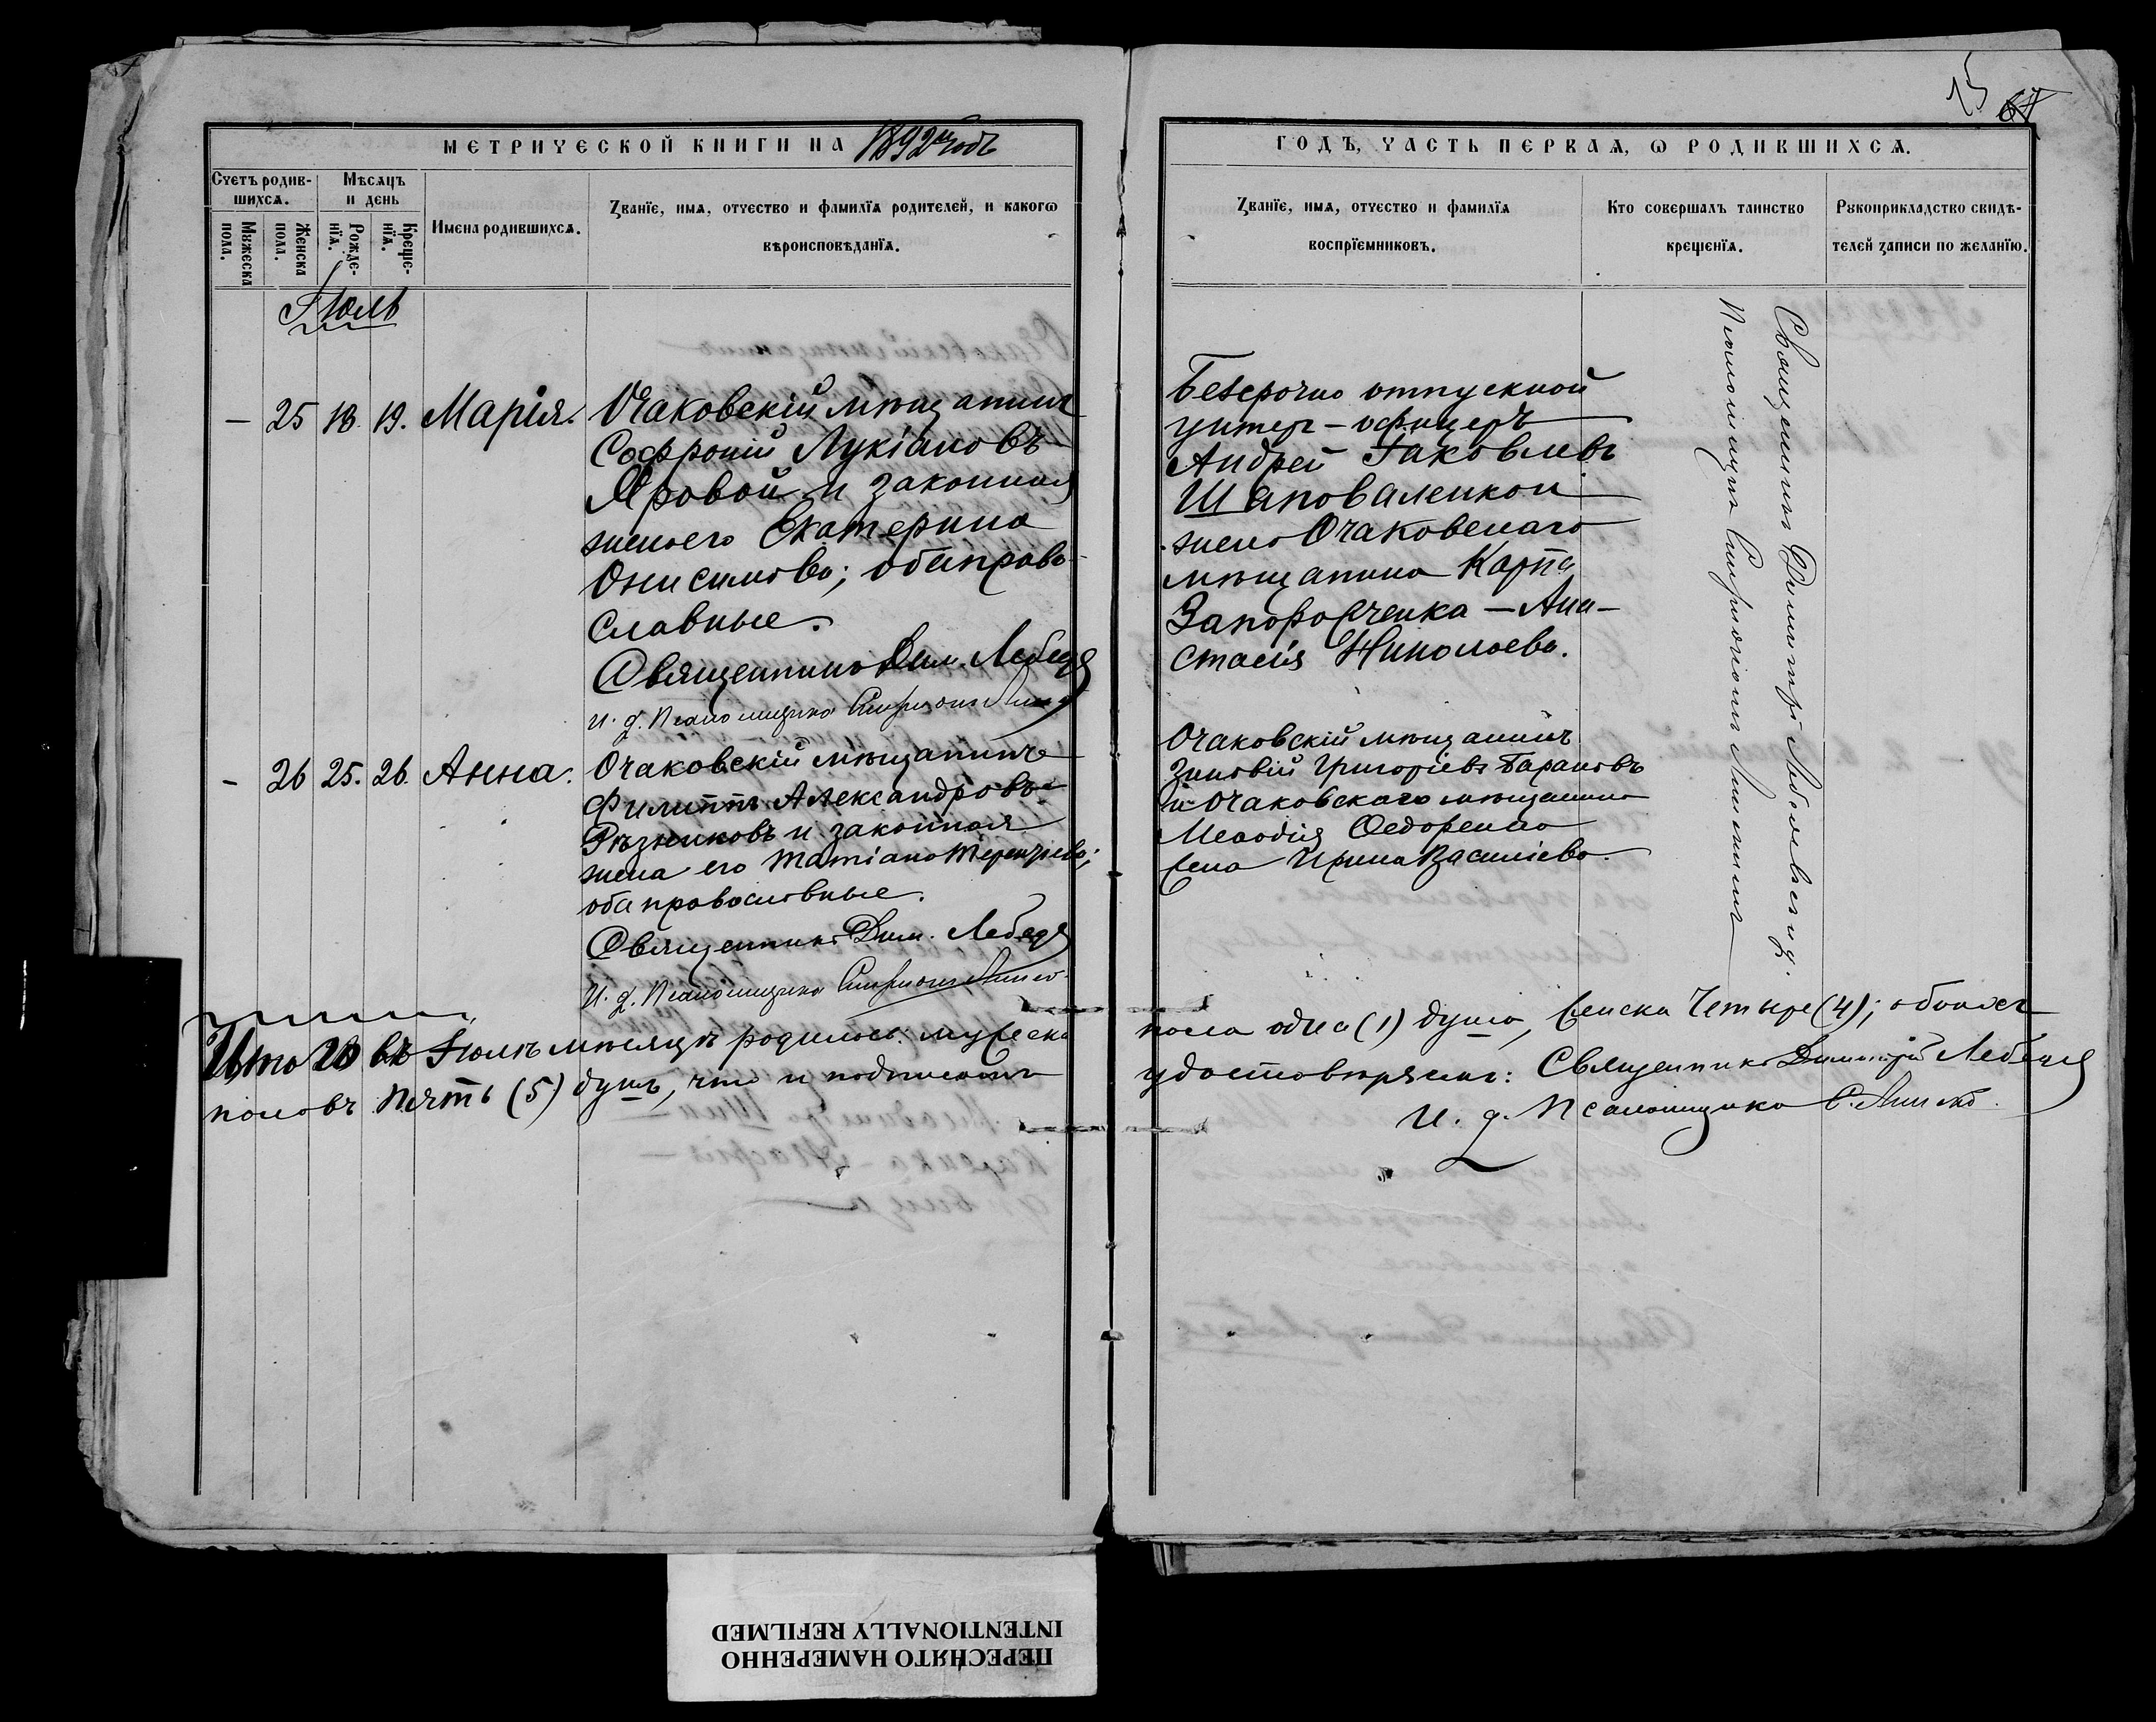 15 67
МЕТРИЧЕСКОЙ КНИГИ НА 1892й годъ
ГОДЪ, ЧАСТЬ ПЕРВАЯ, Ѡ РОДИВШИХСЯ.
Счетъ родив-
шихся.
Мужеска
пола.
Женска
пола.
Мѣсяцъ
и день
Рожде-
нїя.
Креще-
нїя.
Имена родившихся.
Званїе, имя, отчество и фамилїя родителей, и какогѡ
вѣроисповѣданїя.
Званїе, имя, отчество и фамилїя
воспрїемниковъ.
Кто совершалъ таинство
крещенїя.
Рукоприкладство свидѣ-
телей записи по желанїю.
Іюль
— 25 18. 19. Марія.
Очаковскій мѣщанинъ
Софроній Лукіановъ
Яровой и законная
жена его Екатерина
Онисимова; оба право-
славные.
Священникъ Дим. Лебедя
и. д. Псаломщика Спиридонъ
Безсрочно отпускной
унтер-офицеръ
Андрей Іаковлевъ
Шаповаленко и
жена Очаковскаго
мѣщанина Карпа
Запорожченка — Ана-
стасія Николаева.
Священникъ Димитрій
Псаломщикъ Спиридонъ
- 26 25. 26. Анна.
Очаковскій мѣщанинъ
Филиппъ Александровъ
Рѣзниковъ и законная
жена его Татіана Терентіева;
оба православные.
Священникъ Дим. Лебедя
И. д. Псаломщика Спиридонъ
Очаковскій мѣщанинъ
Зиновій Григоріевъ Барановъ
и Очаковскаго мѣщанина
Меѳодія Федоренко
жена Ирина Василіева.
Итого въ Іюлѣ мѣсяцѣ родилось: мужеска
пола одна (1) душа, женска четыре (4); обоихъ
половъ пять (5) душъ, что и подписомъ
удостовѣряемъ: Священникъ Димитрій Лебедя
И. д. Псаломщика С.
ПЕРЕСНЯТО НАМЕРЕННО
INTENTIONALLY REFILMED